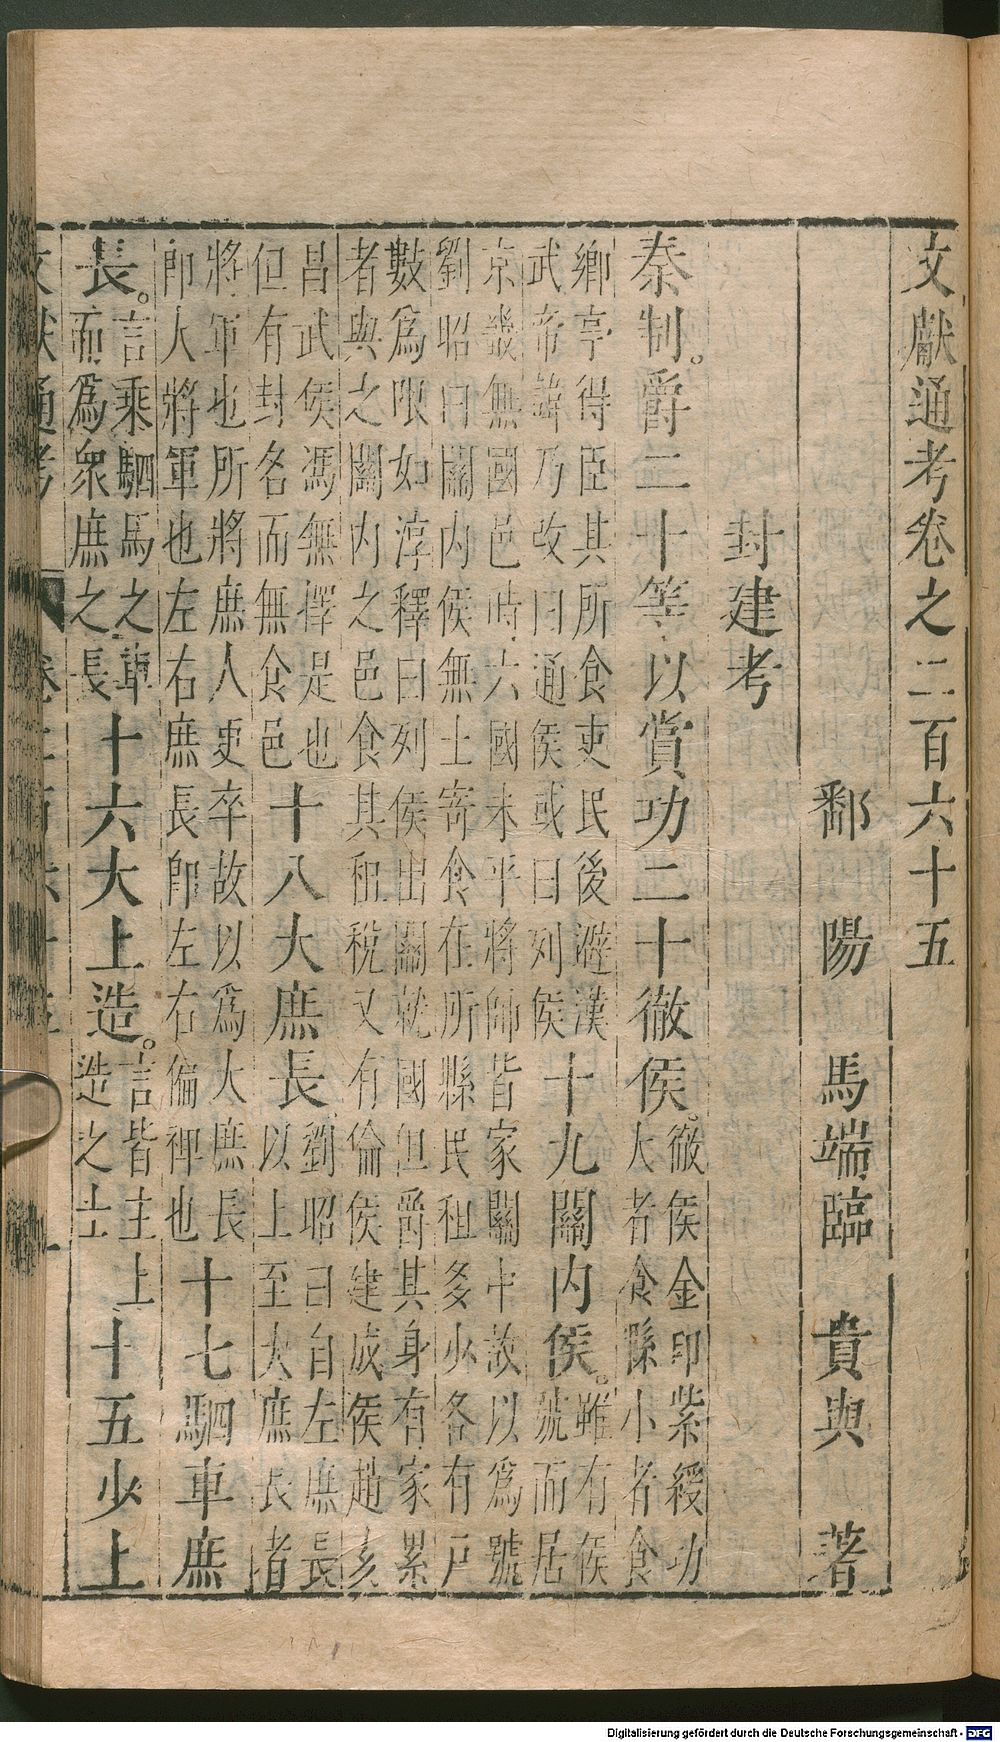 文獻通考卷之二百六十五
鄱陽馬端臨貴與著
封建考
秦制爵二十等以賞功二十徹侯徹侯金印紫綬功
大者食縣小者食
鄉亭得臣其所食吏民後避漢
武帝諱乃改曰通侯或曰列侯十九關內侯雖有侯
號而居
京畿無國邑時六國未平將帥皆家關中故以爲號
劉昭曰關內侯無土寄食在所縣民租多少各有戶
數爲限如淳釋曰列侯出關就國但爵其身有家累
者與之關內之邑食其租稅又有倫侯建成侯趙亥
昌武侯馮無擇是也
但有封名而無食邑十八大庶長劉昭曰自左庶長
以上至大庶長者
將軍也所將庶人更卒故以爲大庶長
卽大將軍也左右庶長卽左右偏裨也十七駟車庶
長言乘駟馬之車
而爲衆庶之長十六大上造言皆主上
造之士十五少上
文獻通考
Digitalisierung gefördert durch die Deutsche Forschungsgemeinschaft - DFG